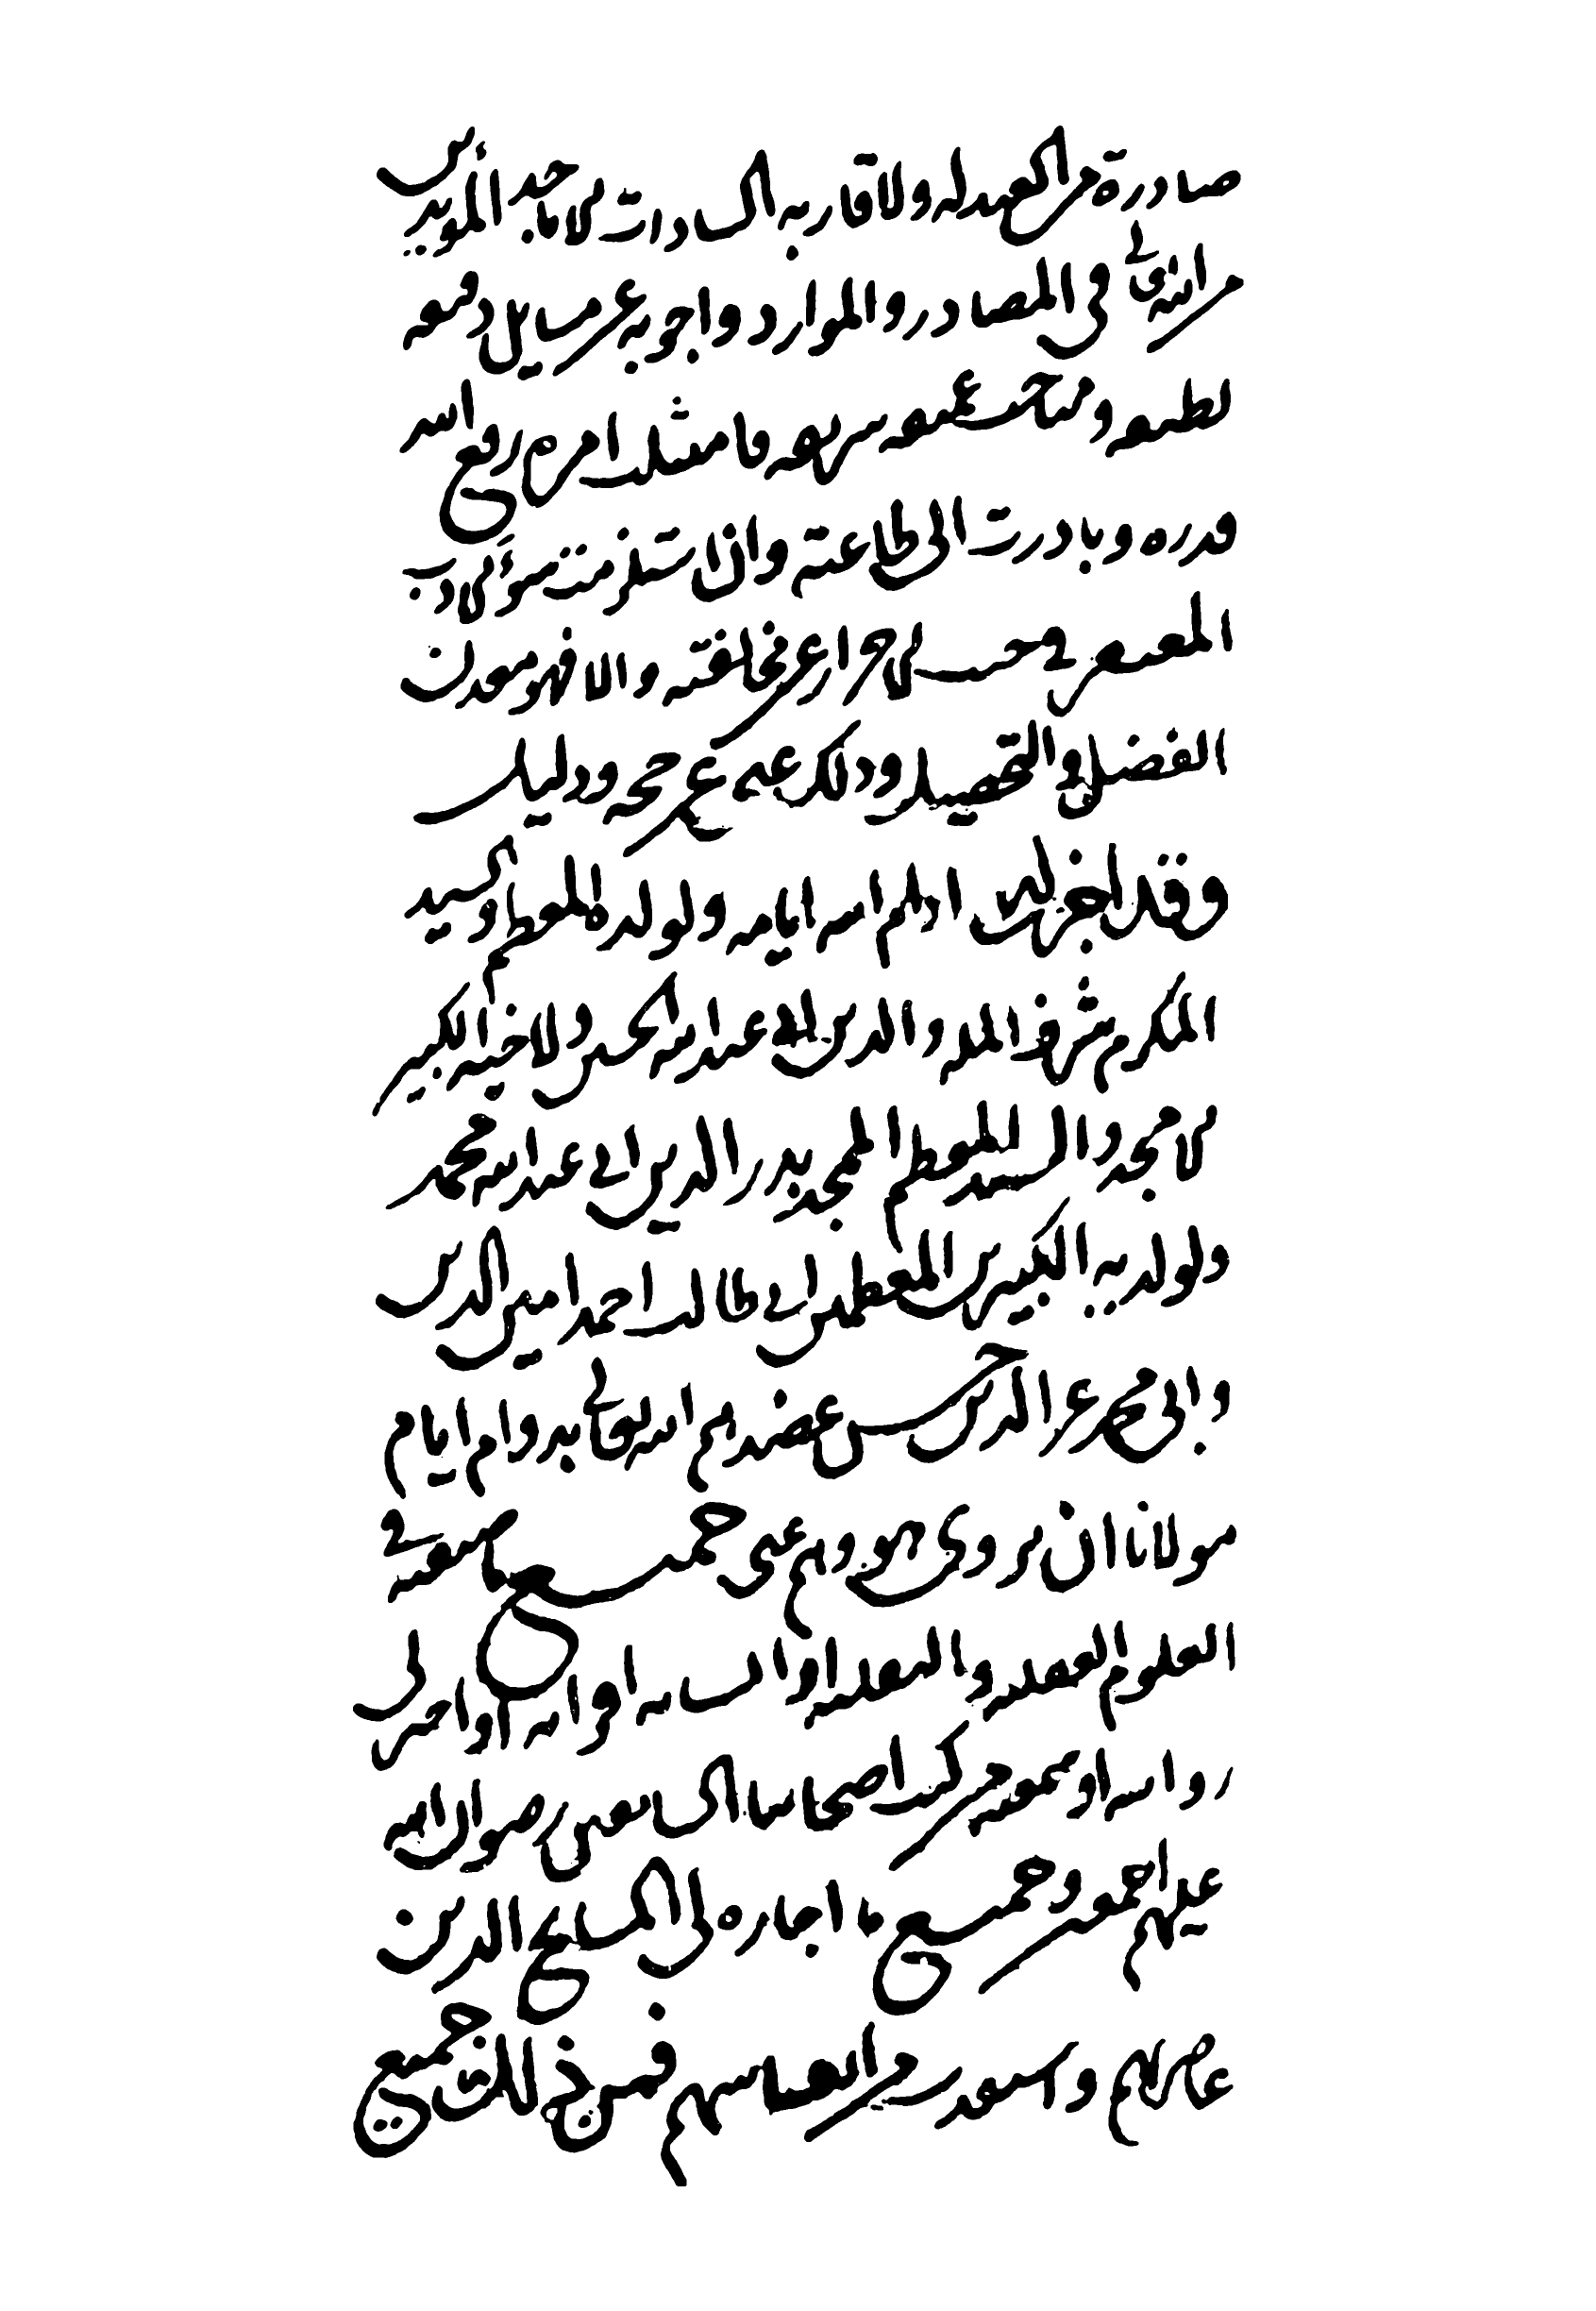 صادرة من العبد له ولاقاربه السادات الاماجد المؤيدين
من الله تعالى في المصادر والموارد واجوبة عن مسايل دقيقه
لطيفه ومباحث عميقه شريفه فامتثلت امره رفع الله
قدره وبادرت الى طاعته وان استلزمت سوء الادب
المغتفر في جنب الاحتراز عن مخالفته والا فهو معدن
الفضل والتحصيل وذلك غني عن حجه ودليل
وقد اجزت له ادام الله ايامه ولولده المعظم والسيد
المكرم شرف المله والدين ابي عبد الله الحسين ولاخيه الكبير
الامجد والسيد المعظم الممجد بدر الدين ابي عبد الله محمد
ولولديه الكبيرين المعظمين ابي طالب احمد امين الدين
وابي محمد عز الدين حسن عضدهم الله تعالى بدوام ايام
مولانا ان يروي هو وهم عني جميع ما صنفته في
العلوم العقليه والنقليه او انشاته او قراته او اجيز لي
روايته او سمعته من كتب اصحابنا السابقين رضوان الله
عليهم اجمعين وجميع ما اجازه لي المشايخ الذين
عاصرتهم واستفدت من انفاسهم فمن ذلك جميع